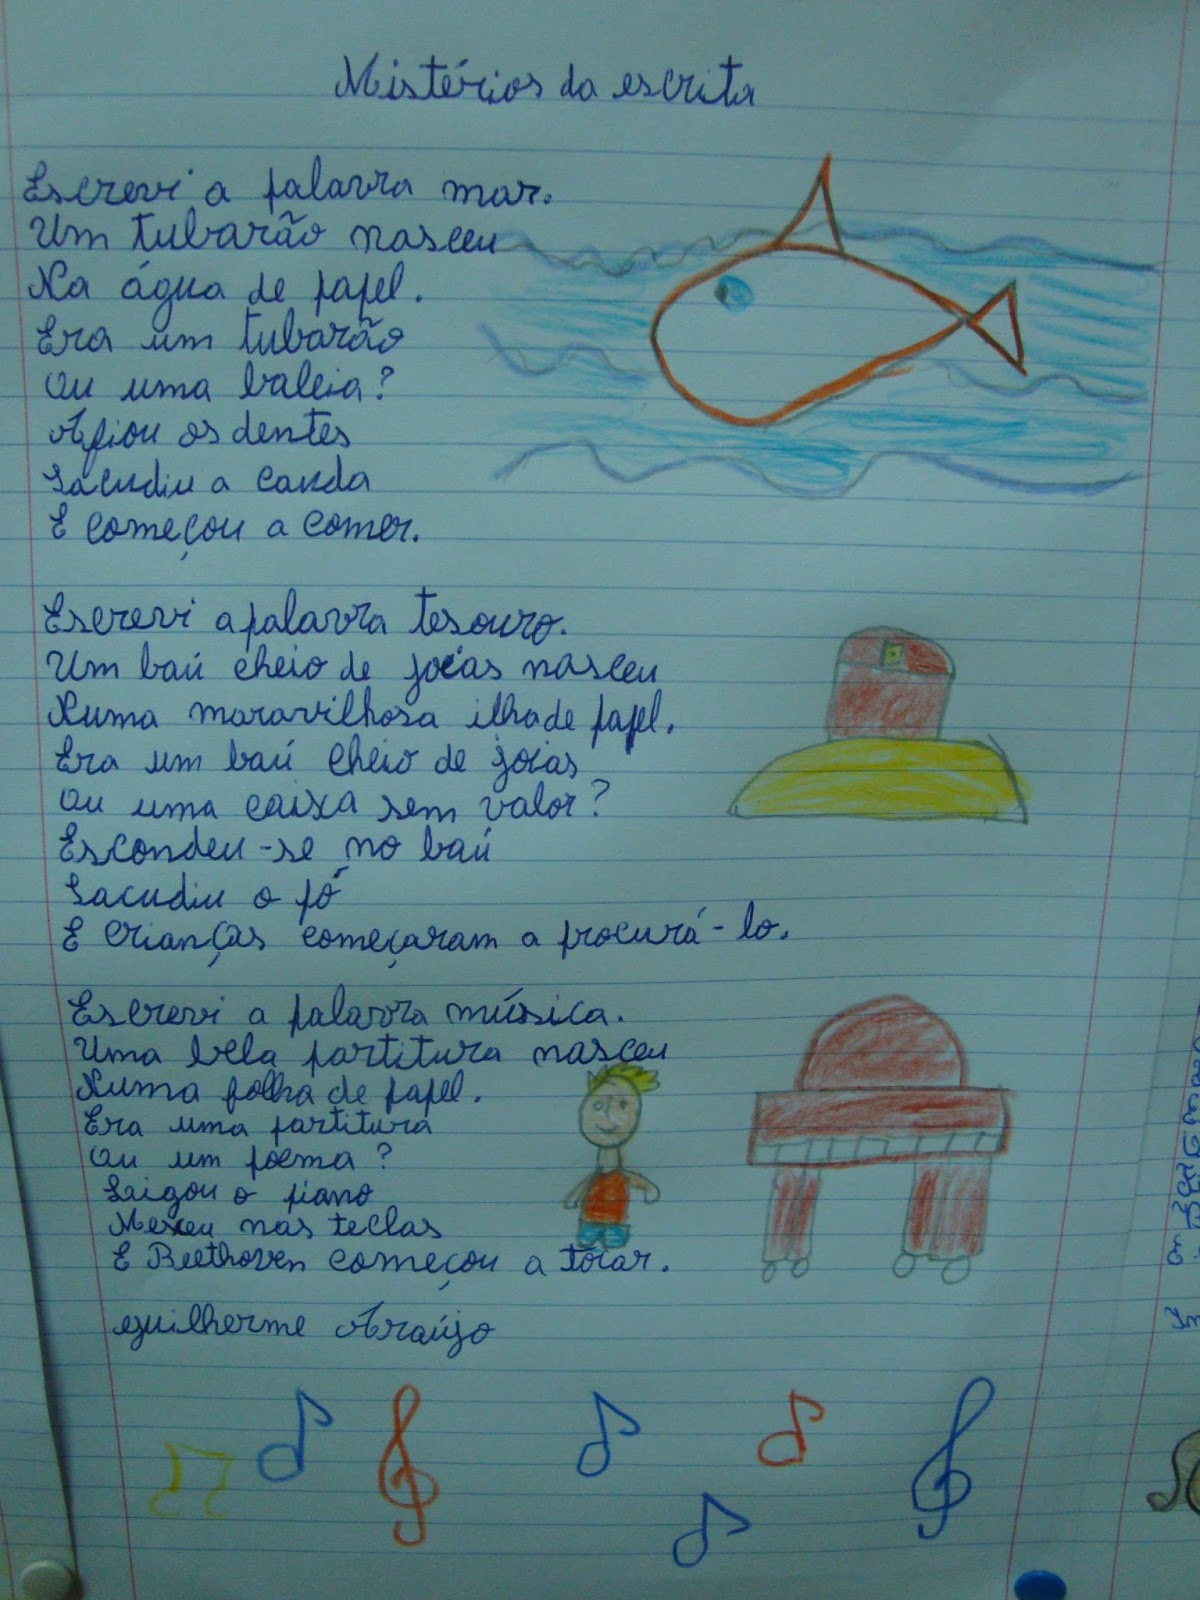 Mistérios da escrita
Escrevi a palavra mar.
Um tubarão nasceu
Na água de papel.
Era um tubarão
Ou uma baleia?
Afiou os dentes
Sacudiu a cauda
E começou a comer.
Escrevi a palavra tesouro.
Um baú cheio de joias nasceu
Numa maravilhosa ilha de papel.
Era um baú cheio de joias
Ou uma caixa sem valor?
Escondeu-se no baú
Sacudiu o pó
E crianças começaram a procurá-lo.
Escrevi a palavra música.
Uma bela partitura nasceu
Numa folha de papel.
Era uma partitura
Ou um poema?
Ligou o piano
Mexeu nas teclas
E Beethoven começou a tocar.
Guilherme Araújo